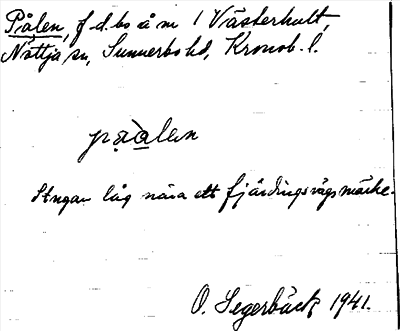 Pålen, f.d. bs å m 1 Västerhult,
Nöttja sn, Sunnerbo hd, Kronob. l.
pạ̀alen
Stugan låg nära ett fjärdingsvägsmärke.
O. Segerbäck 1941.